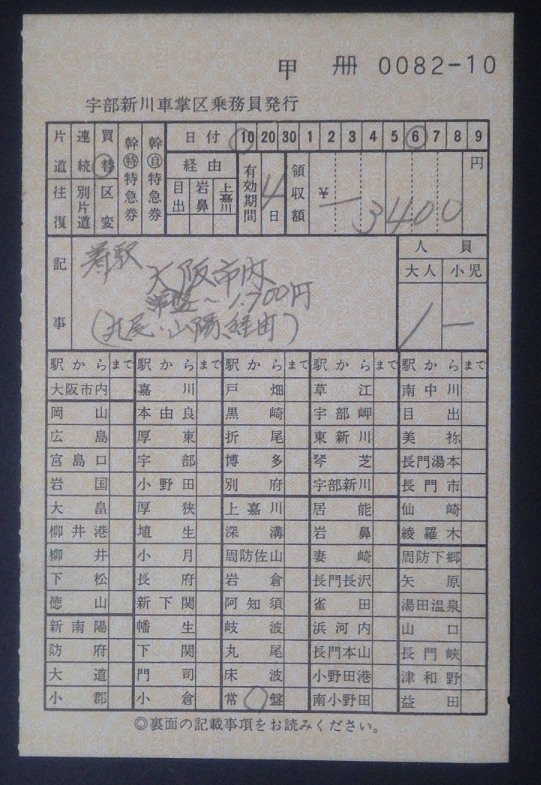 甲 冊 0082-10
宇部新川車掌区乗務員発行
片道往復 連続別片道 買替区変 幹特特急券 幹自特急券 日付 10 20 30 1 2 3 4 5 6 7 8 9
経由 目出 岩鼻 上嘉川 有効期間 4日 領収額 ¥ 3400 円
記事 着駅 大阪市内
常盤〜1,700円
(丸尾・山陽経由)
人員
大人 小児
1 ー
駅から まで 駅から まで 駅から まで 駅から まで 駅から まで
大阪市内 嘉川 戸畑 草江 南中川
岡山 本由良 黒崎 宇部岬 目出
広島 厚東 折尾 東新川 美祢
宮島口 宇部 博多 琴芝 長門湯本
岩国 小野田 別府 宇部新川 長門市
大畠 厚狭 上嘉川 居能 仙崎
柳井港 埴生 深溝 岩鼻 綾羅木
柳井 小月 周防佐山 妻崎 周防下郷
下松 長府 岩倉 長門長沢 矢原
徳山 新下関 阿知須 雀田 湯田温泉
新南陽 幡生 岐波 浜河内 山口
防府 下関 丸尾 長門本山 長門峡
大道 門司 床波 小野田港 津和野
小郡 小倉 常盤 南小野田 益田
◎裏面の記載事項をお読みください。